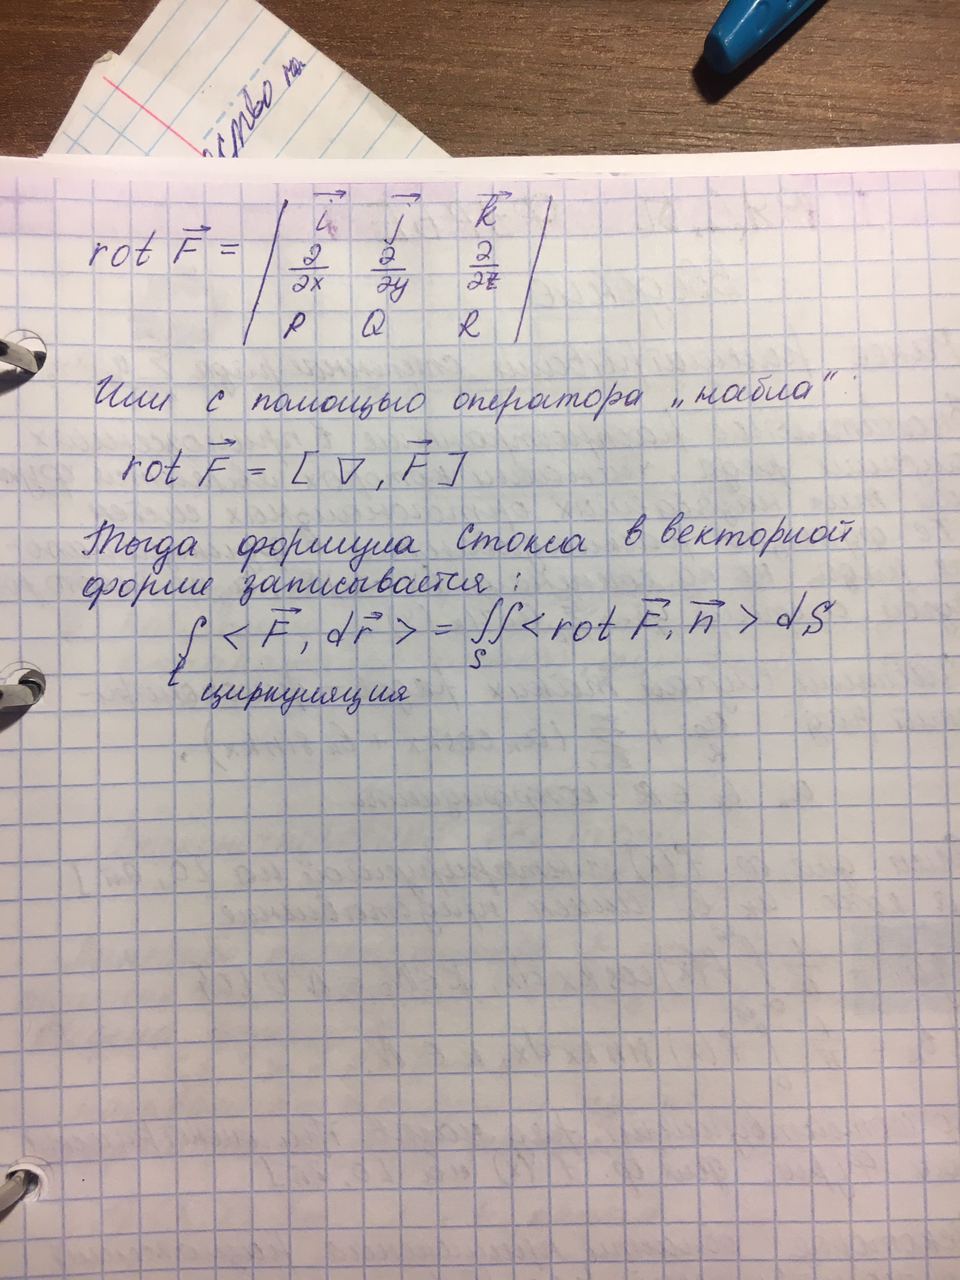 ство на
rot F⃗ = | i⃗ j⃗ k⃗ |
| ∂/∂x ∂/∂y ∂/∂z |
| P Q R |
Или с помощью оператора „набла“:
rot F⃗ = [ ∇, F⃗ ]
Тогда формула Стокса в векторной
форме записывается:
∫_L < F⃗, dr⃗ > = ∬_S < rot F⃗, n⃗ > dS
циркуляция